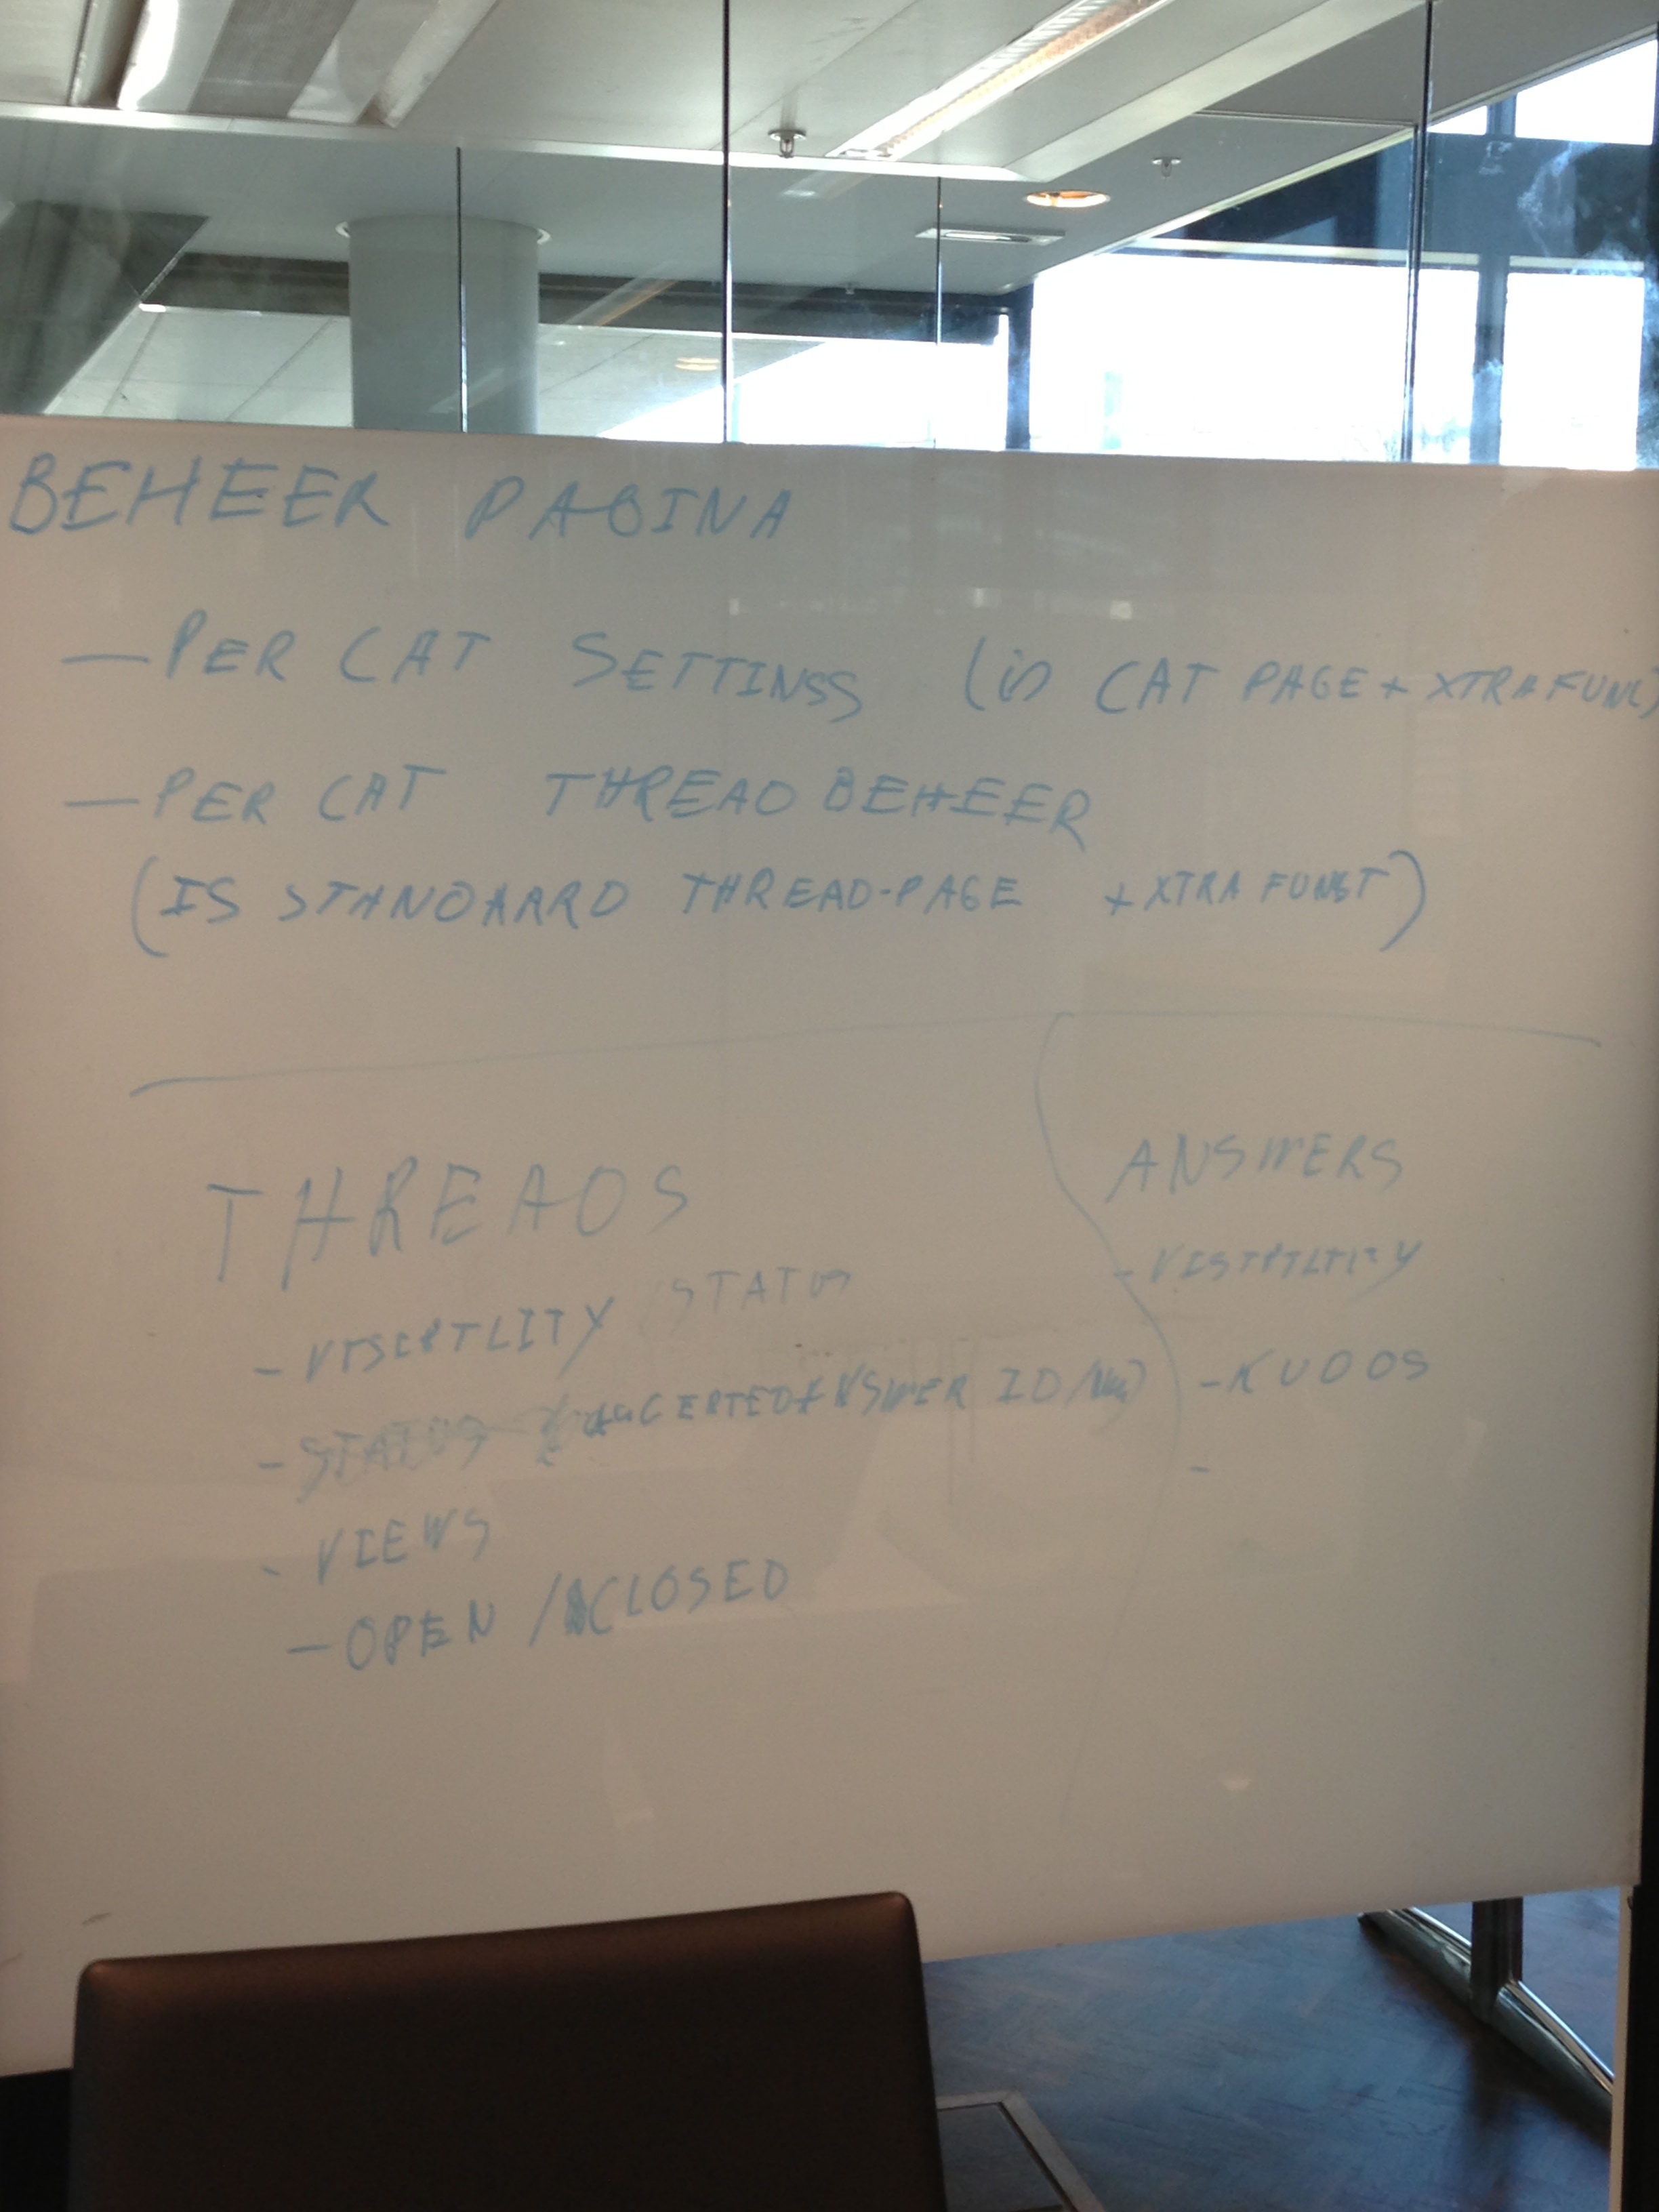 BEHEER PAGINA
- PER CAT SETTINGS (is CAT PAGE + XTRA FUNC)
- PER CAT THREAD BEHEER
(IS STANDAARD THREAD-PAGE + XTRA FUNCT)
THREADS
- VISIBILITY STATUS
- STATUS ACCEPTED ANSWER ID/
- VIEWS
- OPEN / CLOSED
ANSWERS
- VISIBILITY
- KUDOS
-